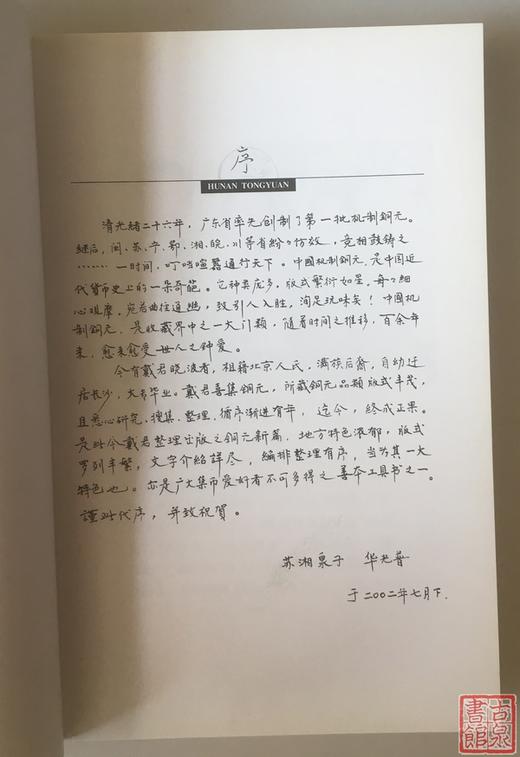 序
HUNAN TONGYUAN
清光绪二十六年，广东省率先创制了第一批机制铜元。
继后，闽、苏、宁、鄂、湘、皖、川等省纷々仿效，竞相鼓铸之
……一时间，叮咚喧嚣通行天下。中國机制铜元，是中国近
代貨币史上的一朵奇葩。它种类庞多，版式繁衍如星，每々细
心观摩，宛若曲径通幽，致引人入胜，洵足玩味矣！中國机
制铜元，是收藏界中之一大门类，随着时间之推移，百余年
来，愈来愈受世人之钟爱。
今有戴君晓波者，祖籍北京人氏，满族后裔，自幼迁
居长沙，大专毕业。戴君善集铜元，所藏铜元品類版式丰茂，
且悉心研究、搜集、整理，循序渐进有年，迄今，终成正果。
是以今戴君整理出版之铜元新篇，地方特色浓郁，版式
罗列丰繁，文字介绍詳尽，编排整理有序，当为其一大
特色也。亦是广大集币爱好者不可多得之善本工具书之一。
謹以代序，并致祝賀。
苏湘泉子 华光普
于二〇〇二年七月下.
古泉書館